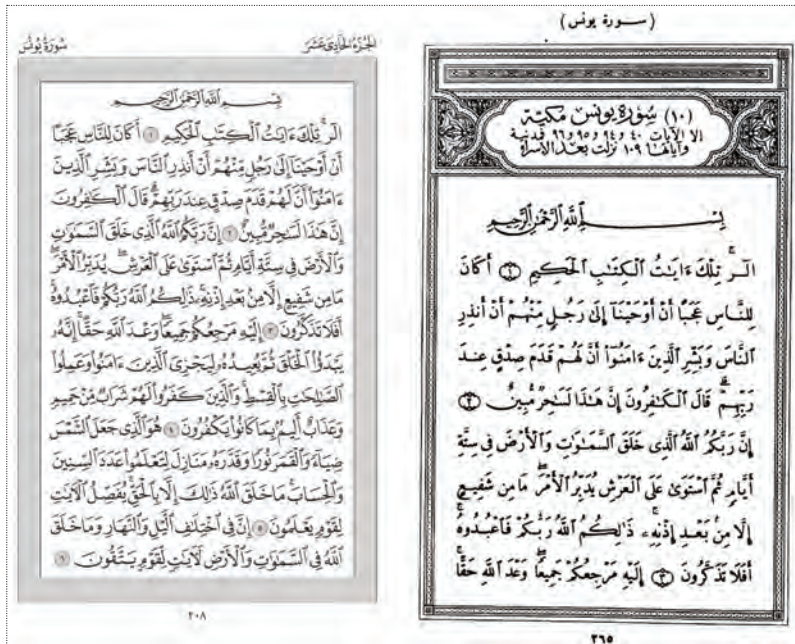 (سورة يونس)
(١٠) سُورَة يُونسَ مَكيّة
إلا الآيات ٤٠ و٩٤ و٩٥ و٩٦ فمدنية
وآياتها ١٠٩ نزلت بعد الإسراء
بِسْمِ ٱللَّهِ ٱلرَّحْمَٰنِ ٱلرَّحِيمِ
الٓر ۚ تِلْكَ ءَايَٰتُ ٱلْكِتَٰبِ ٱلْحَكِيمِ ① أَكَانَ
لِلنَّاسِ عَجَبًا أَنْ أَوْحَيْنَآ إِلَىٰ رَجُلٍ مِّنْهُمْ أَنْ أَنذِرِ
ٱلنَّاسَ وَبَشِّرِ ٱلَّذِينَ ءَامَنُوٓا۟ أَنَّ لَهُمْ قَدَمَ صِدْقٍ عِندَ
رَبِّهِمْ ۗ قَالَ ٱلْكَٰفِرُونَ إِنَّ هَٰذَا لَسَٰحِرٌ مُّبِينٌ ②
إِنَّ رَبَّكُمُ ٱللَّهُ ٱلَّذِى خَلَقَ ٱلسَّمَٰوَٰتِ وَٱلْأَرْضَ فِى سِتَّةِ
أَيَّامٍ ثُمَّ ٱسْتَوَىٰ عَلَى ٱلْعَرْشِ يُدَبِّرُ ٱلْأَمْرَ ۖ مَا مِن شَفِيعٍ
إِلَّا مِنۢ بَعْدِ إِذْنِهِۦ ۚ ذَٰلِكُمُ ٱللَّهُ رَبُّكُمْ فَٱعْبُدُوهُ ۚ
أَفَلَا تَذَكَّرُونَ ③ إِلَيْهِ مَرْجِعُكُمْ جَمِيعًا ۖ وَعْدَ ٱللَّهِ حَقًّا ۚ
٢٦٥
الجزء الحادي عشر
سورة يونس
بِسْمِ ٱللَّهِ ٱلرَّحْمَٰنِ ٱلرَّحِيمِ
الٓر ۚ تِلْكَ ءَايَٰتُ ٱلْكِتَٰبِ ٱلْحَكِيمِ ① أَكَانَ لِلنَّاسِ عَجَبًا
أَنْ أَوْحَيْنَآ إِلَىٰ رَجُلٍ مِّنْهُمْ أَنْ أَنذِرِ ٱلنَّاسَ وَبَشِّرِ ٱلَّذِينَ
ءَامَنُوٓا۟ أَنَّ لَهُمْ قَدَمَ صِدْقٍ عِندَ رَبِّهِمْ ۗ قَالَ ٱلْكَٰفِرُونَ
إِنَّ هَٰذَا لَسَٰحِرٌ مُّبِينٌ ② إِنَّ رَبَّكُمُ ٱللَّهُ ٱلَّذِى خَلَقَ ٱلسَّمَٰوَٰتِ
وَٱلْأَرْضَ فِى سِتَّةِ أَيَّامٍ ثُمَّ ٱسْتَوَىٰ عَلَى ٱلْعَرْشِ ۖ يُدَبِّرُ ٱلْأَمْرَ ۖ
مَا مِن شَفِيعٍ إِلَّا مِنۢ بَعْدِ إِذْنِهِۦ ۚ ذَٰلِكُمُ ٱللَّهُ رَبُّكُمْ فَٱعْبُدُوهُ ۚ
أَفَلَا تَذَكَّرُونَ ③ إِلَيْهِ مَرْجِعُكُمْ جَمِيعًا ۖ وَعْدَ ٱللَّهِ حَقًّا ۚ إِنَّهُۥ
يَبْدَؤُا۟ ٱلْخَلْقَ ثُمَّ يُعِيدُهُۥ لِيَجْزِىَ ٱلَّذِينَ ءَامَنُوا۟ وَعَمِلُوا۟
ٱلصَّٰلِحَٰتِ بِٱلْقِسْطِ ۚ وَٱلَّذِينَ كَفَرُوا۟ لَهُمْ شَرَابٌ مِّنْ حَمِيمٍ
وَعَذَابٌ أَلِيمٌۢ بِمَا كَانُوا۟ يَكْفُرُونَ ④ هُوَ ٱلَّذِى جَعَلَ ٱلشَّمْسَ
ضِيَآءً وَٱلْقَمَرَ نُورًا وَقَدَّرَهُۥ مَنَازِلَ لِتَعْلَمُوا۟ عَدَدَ ٱلسِّنِينَ
وَٱلْحِسَابَ ۚ مَا خَلَقَ ٱللَّهُ ذَٰلِكَ إِلَّا بِٱلْحَقِّ ۚ يُفَصِّلُ ٱلْءَايَٰتِ
لِقَوْمٍ يَعْلَمُونَ ⑤ إِنَّ فِى ٱخْتِلَٰفِ ٱلَّيْلِ وَٱلنَّهَارِ وَمَا خَلَقَ
ٱللَّهُ فِى ٱلسَّمَٰوَٰتِ وَٱلْأَرْضِ لَءَايَٰتٍ لِّقَوْمٍ يَتَّقُونَ ⑥
٢٠٨